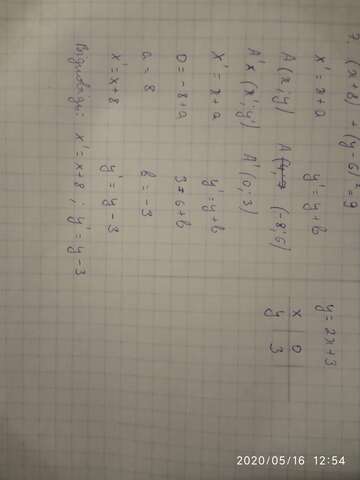 7. (x+8)² + (y-6)² = 9
x' = x + a     y' = y + b
A (x; y)     A (-8; 6)
A'x (x'; y')     A' (0; 3)
x' = x + a     y' = y + b
0 = -8 + a     3 = 6 + b
a = 8     b = -3
x' = x + 8     y' = y - 3
Відповідь: x' = x + 8 ; y' = y - 3
y = 2x + 3
x 0
y 3
2020/05/16 12:54